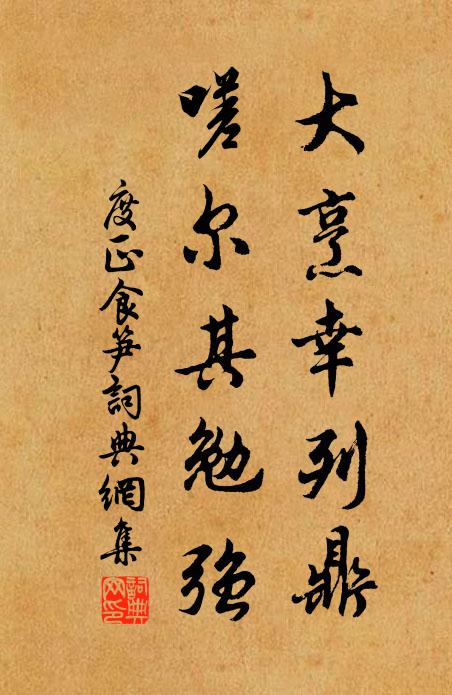 大烹幸列鼎
嗟尔其勉强
度正食笋詞典網集
詞典网印